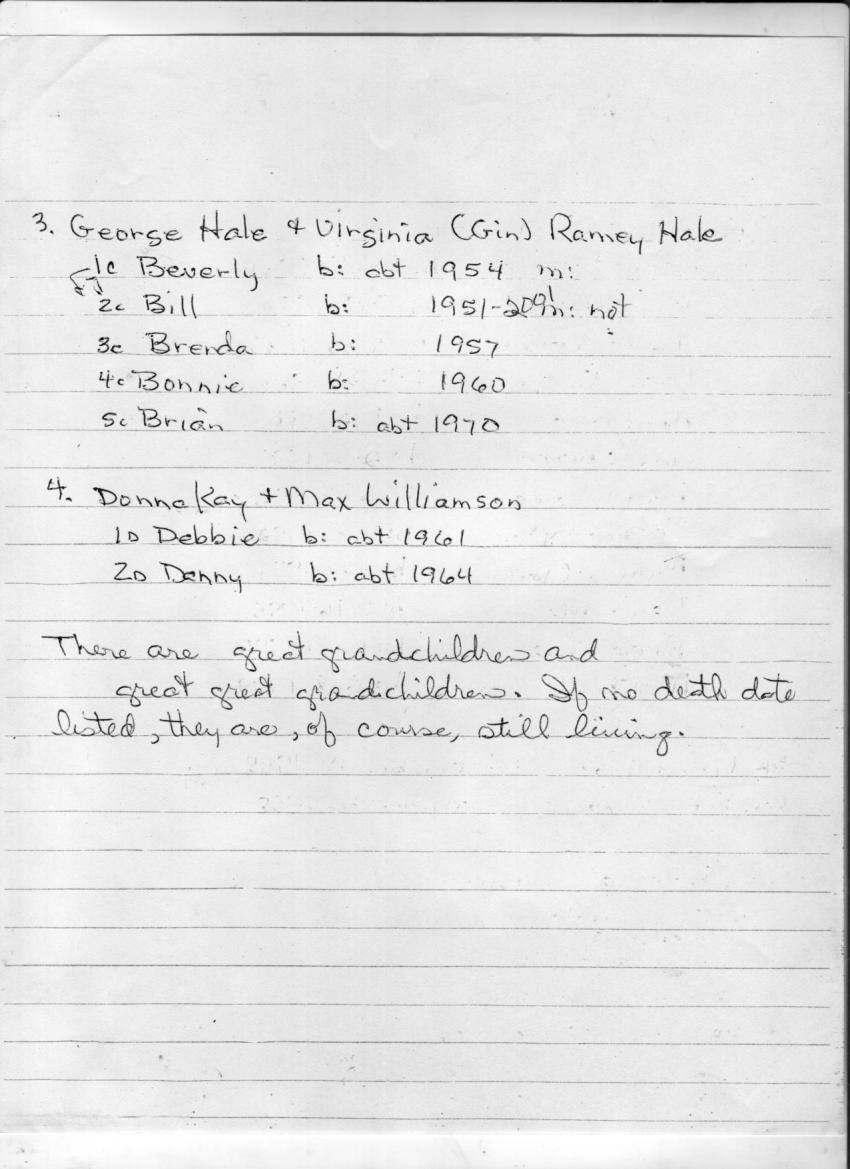 3. George Hale + Virginia (Gin) Ramey Hale
1c Beverly b: abt 1954 m:
2c Bill b: 1951- m: not
3c Brenda b: 1957
4c Bonnie b: 1960
5c Brian b: abt 1970
4. Donna Kay + Max Williamson
1D Debbie b: abt 1961
2D Denny b: abt 1964
There are great grandchildren and
great great gradichildren. If no death date
listed, they are, of course, still living.